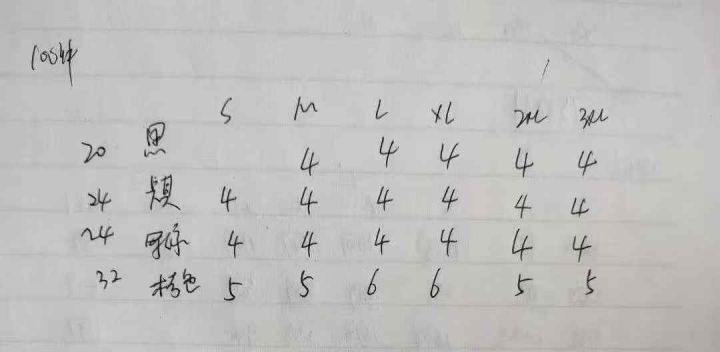 S M L XL 2XL 3XL
20 黑 4 4 4 4 4
24 4 4 4 4 4 4
24 4 4 4 4 4 4
32 棕色 5 5 6 6 5 5